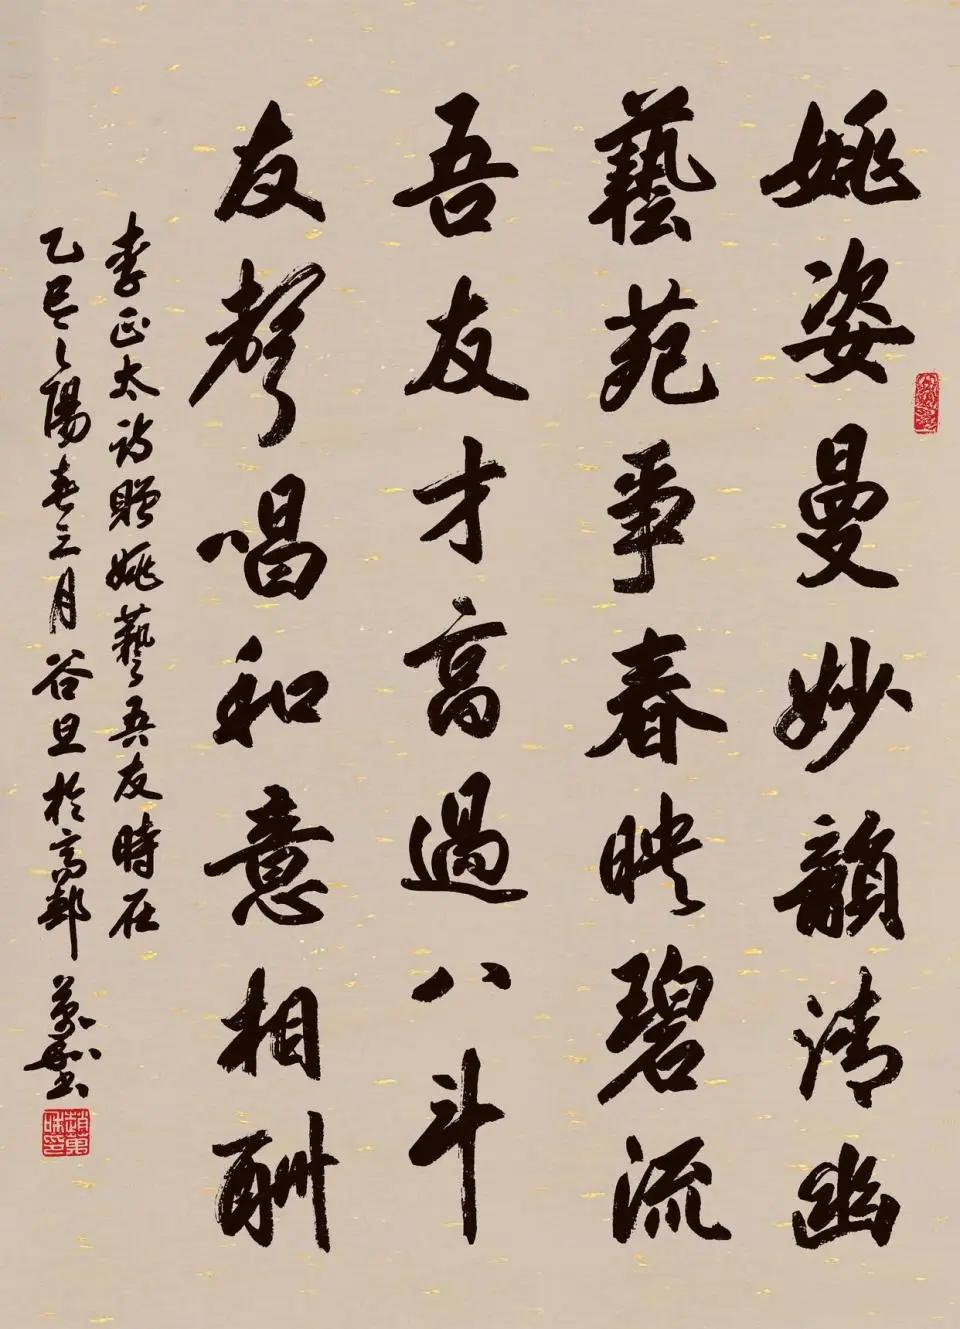 姚姿曼妙韻清幽
藝苑事春映碧流
吾友才高過八斗
友聲唱和意相酬
李正太詩贈姚藝吾友時在
乙巳之陽春三月谷旦於高郵